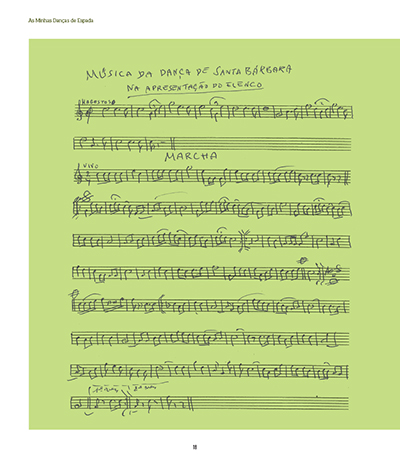 As Minhas Danças de Espada
MÚSICA DA DANÇA DE SANTA BÁRBARA
NA APRESENTAÇÃO DO ELENCO
MAGESTOSO
MARCHA
VIVO
18